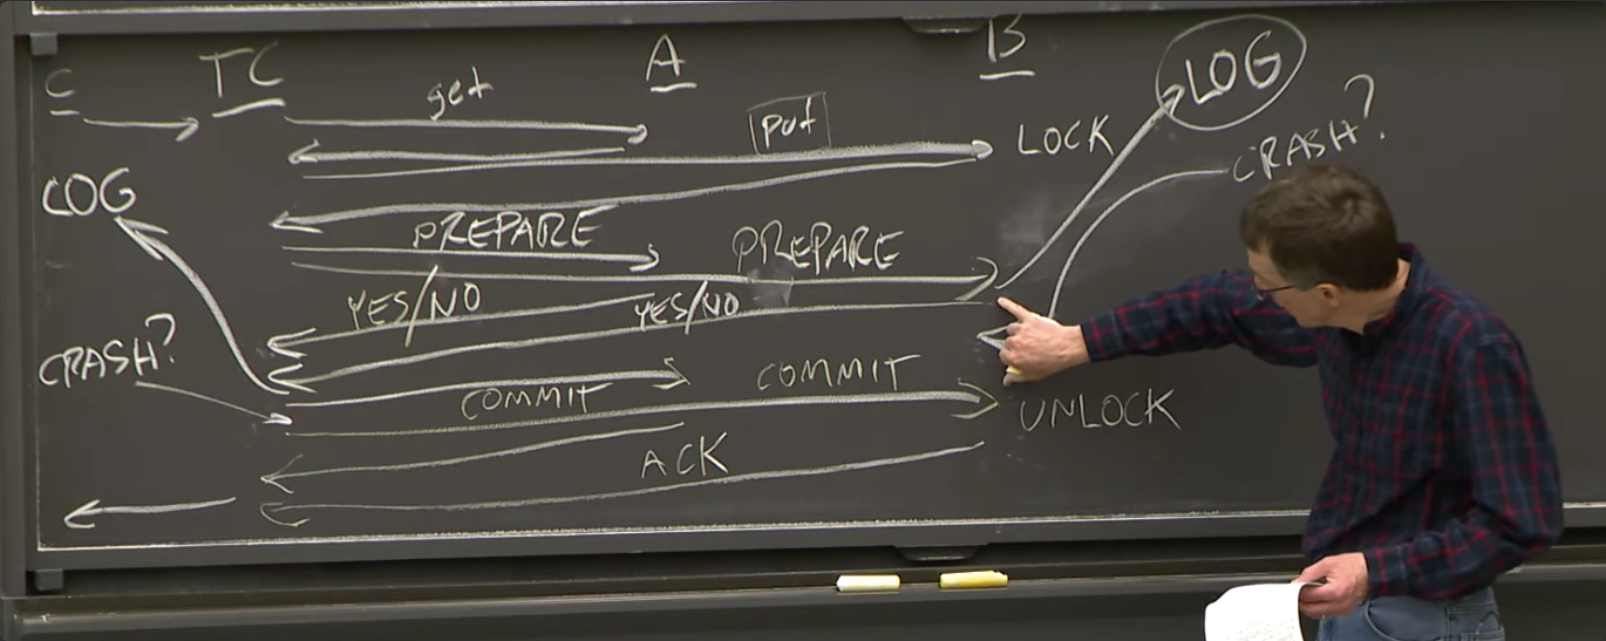 C TC A B
get
put
LOCK
LOG
CRASH?
LOG
PREPARE
PREPARE
YES/NO
YES/NO
CRASH?
COMMIT
COMMIT
UNLOCK
ACK